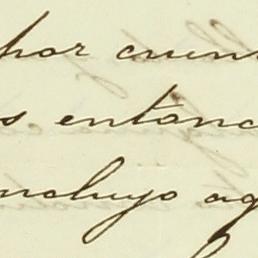 por cuen
s entonc
ncluyo ag